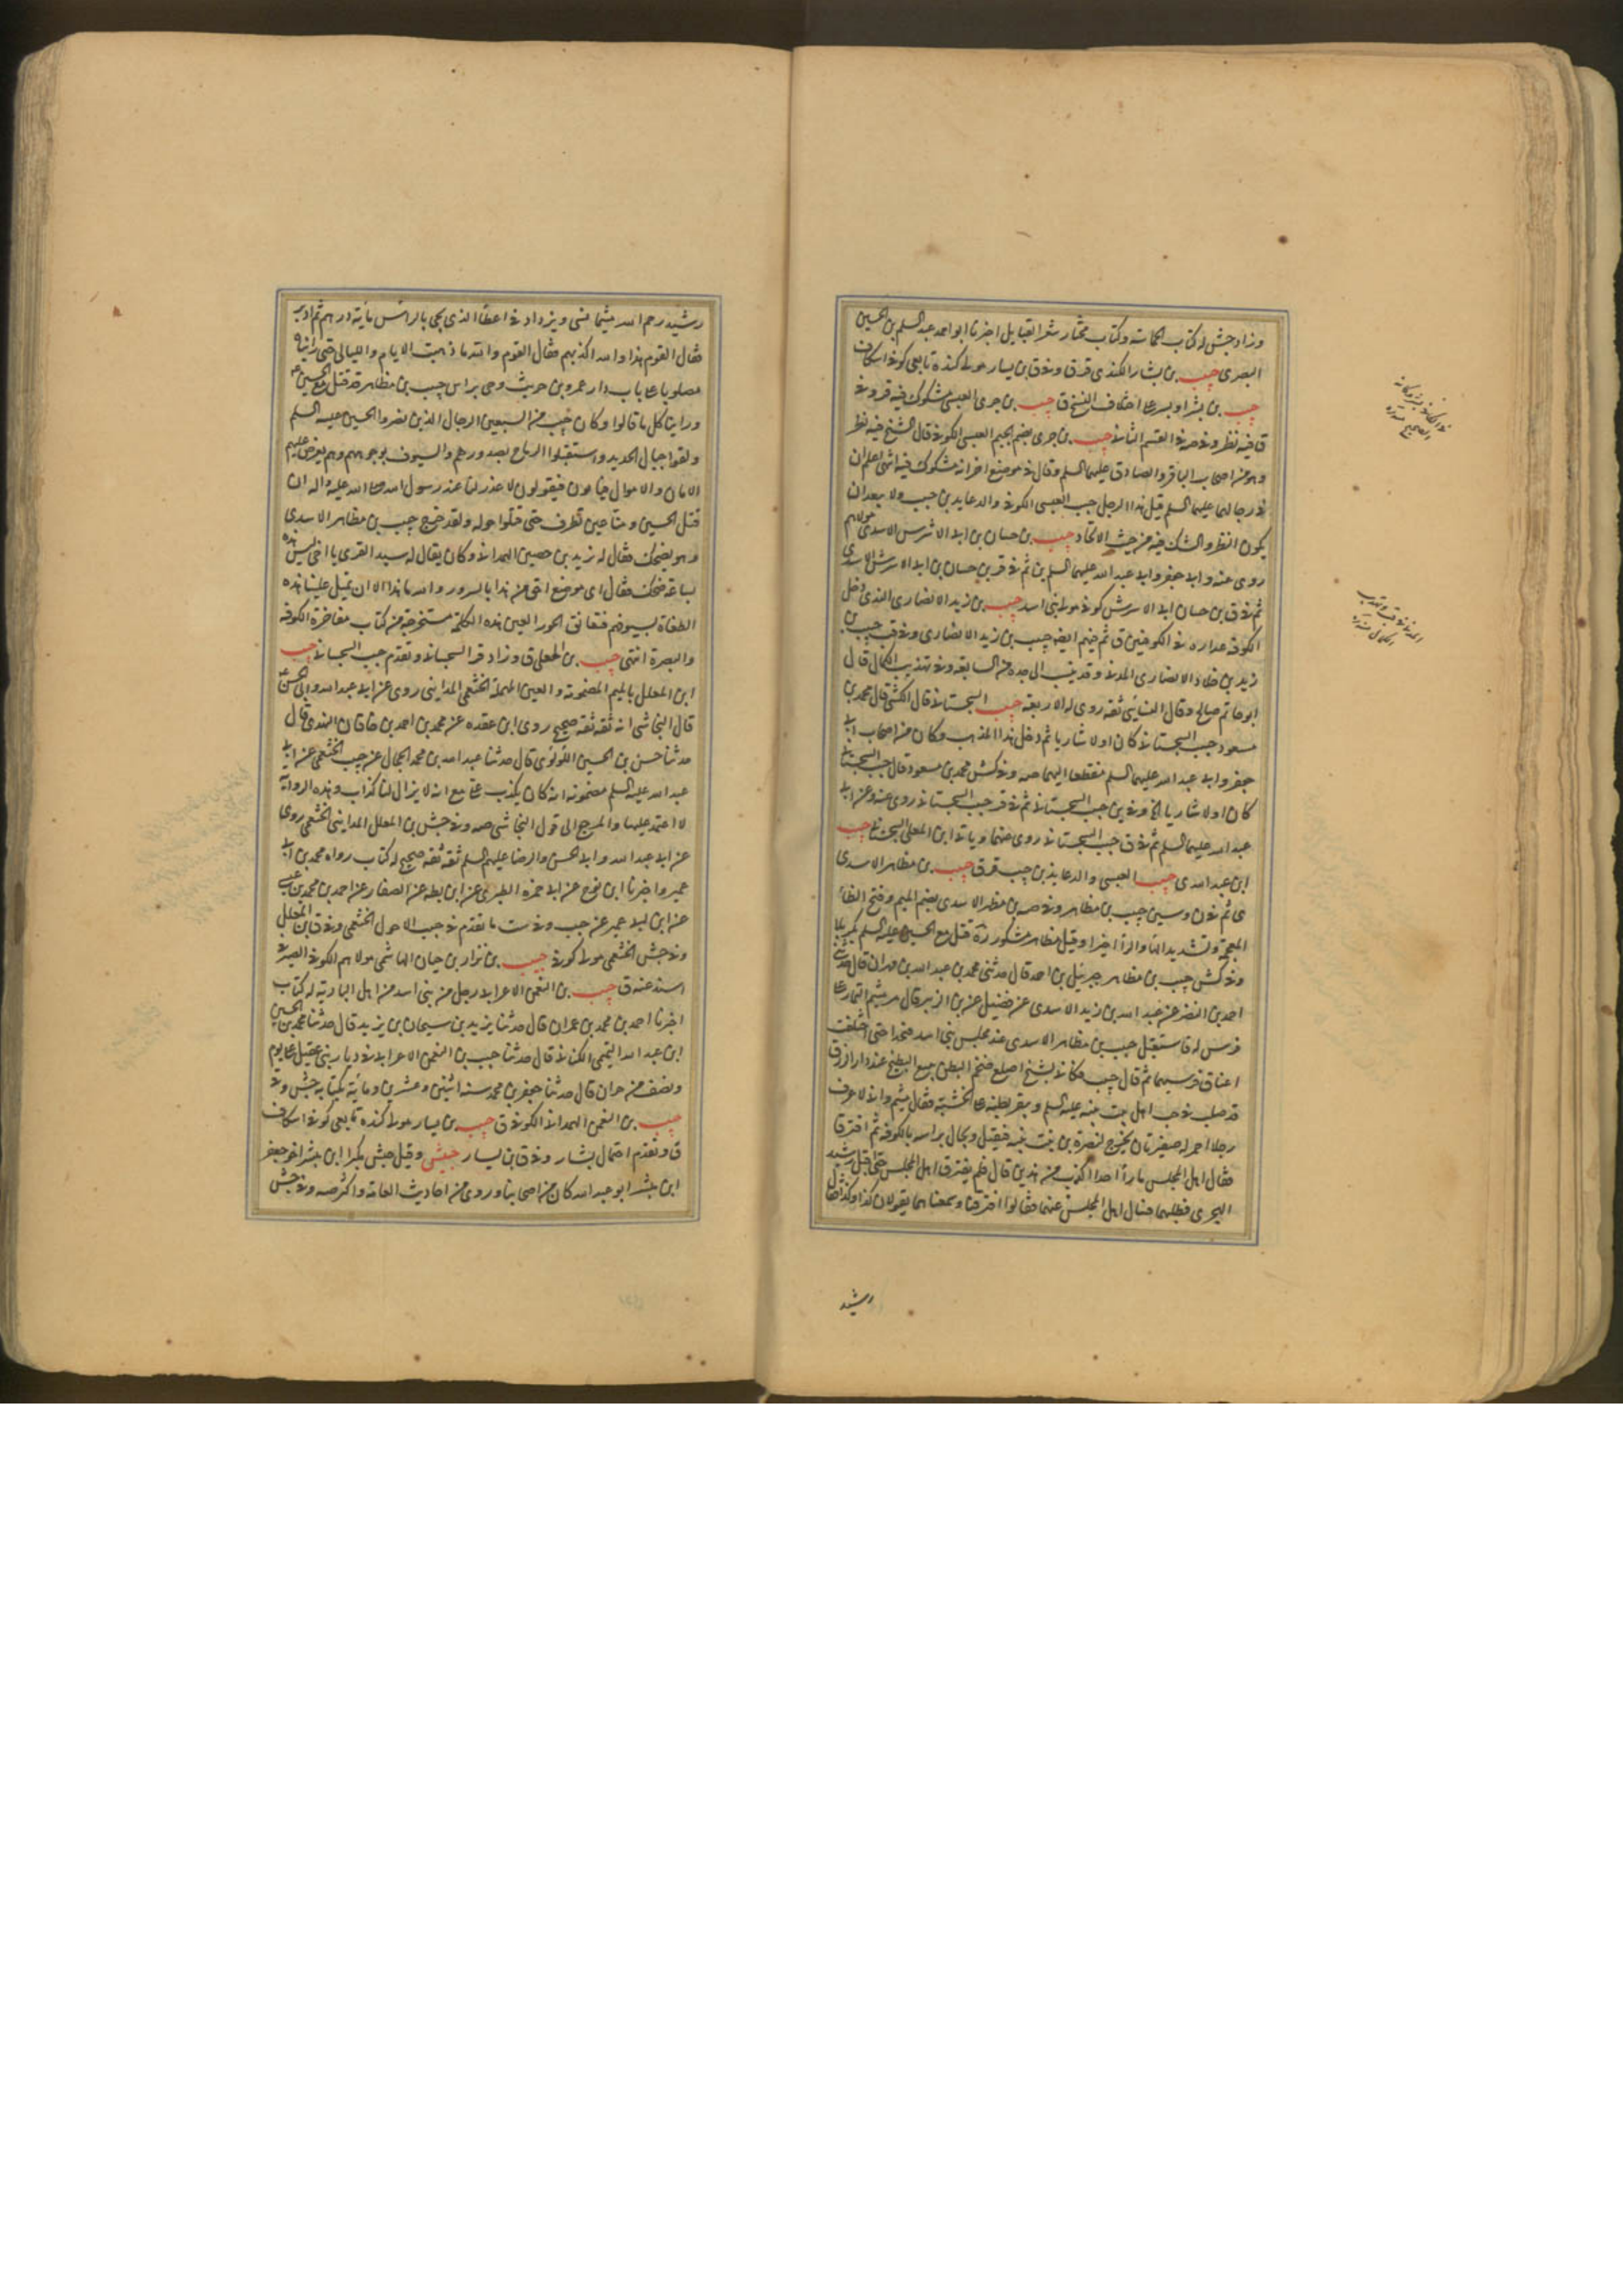 وزاد جش له كتاب الحماسة وكتاب مختار شعر القبايل اخبرنا ابو احمد عبد السلم بن الحسين
البصرى حبيب بن بشار الكندى ق وفى ق ابن يسار مولى كنده تابعى كوفى اسكاف
حبيب بن بشر او بسر على اختلاف النسخ ق حبيب بن جرى العبسى مشكوك فيه قر وفى
ق فيه نظر وفى صه فى القسم الثانى حبيب بن جرى بضم الجيم العبسى الكوفى قال الشيخ فيه نظر
وهو من اصحاب الباقر والصادق عليهما السلم وقال فى موضع اخر انه مشكوك فيه انتهى اعلم ان
فى رجالهما عليهما السلم قيل هذا الرجل حبيب العبسى الكوفى والد عايد بن حبيب ولا يبعد ان
يكون النظر والشك فيه من حيث الاتحاد حبيب بن حسان بن ابى الاشرس الاسدى مولاهم
روى عنه وابى جعفر وابى عبد الله عليهما السلم ين ثم فى قر بن حسان بن ابى الاشرس الاسدى
ثم فى ق بن حسان ابى الاشرس كوفى مولى بنى اسد حبيب بن زيد الانصارى الذى دخل
الكوفة عداده فى الكوفيين ق ثم فيهم ايضا حبيب بن زيد الانصارى وفى قب حبيب بن
زيد بن خلاد الانصارى المدنى وقد ينسب الى جده من السابعة وفى تهذيب الكمال قال
ابو حاتم صالح وقال النسائى ثقة روى له الاربعة حبيب السجستانى قال الكشى قال محمد بن
مسعود حبيب السجستانى كان اولا شاريا ثم دخل هذا المذهب وكان من اصحاب ابى
جعفر وابى عبد الله عليهما السلم منقطعا اليهما صه وفى كش محمد بن مسعود قال حبيب السجستانى
كان اولا شاريا الخ وفى ين حبيب السجستانى ثم فى قر حبيب السجستانى روى عنه وعن ابى
عبد الله عليهما السلم ثم فى ق حبيب السجستانى روى عنهما وياتى ابن المعلى السجستانى حبيب
ابن عبد الله ى حبيب العبسى والد عايذ بن حبيب قر ق حبيب بن مظاهر الاسدى
ى ثم فى ن وسين حبيب بن مظاهر وفى صه بن مظهر الاسدى بضم الميم وفتح الظاء
المعجمة وتشديد الهاء والراء اخيرا وقيل مظاهر مشكور ره قتل مع الحسين عليه السلم بكربلا
وفى كش حبيب بن مظاهر جبرئيل بن احمد قال حدثنى محمد بن عبد الله بن مهران قال حدثنى
احمد بن النضر عن عبد الله بن زيد الاسدى عن فضيل بن الزبير قال مر ميثم التمار على
فرس له فاستقبل حبيب بن مظاهر الاسدى عند مجلس بنى اسد فتحدثا حتى اختلفت
اعناق فرسيهما ثم قال حبيب فكانى بشيخ اصلع ضخم البطن يبيع البطيخ عند دار الرزق
قد صلب فى حب اهل بيت نبيه عليه السلم ويبقر بطنه على الخشبة فقال ميثم وانى لاعرف
رجلا احمر له صغيرتان يخرج لنصرة بن بنت نبيه فيقتل ويجال براسه بالكوفة ثم افترقا
فقال اهل المجلس ما راينا احدا اكذب من هذين قال فلم يفترق اهل المجلس حتى اقبل رشيد
الهجرى فطلبهما فسال اهل المجلس عنهما فقالوا افترقا وسمعناهما يقولان كذا وكذا فقال
رشيد
رشيد رحم الله ميثما نسى ويزداد فى اعطاء الذى يجى بالراس مائة درهم ثم ادبر
فقال القوم هذا والله اكذبهم فقال القوم والله ما ذهبت الايام والليالى حتى رايناه
مصلوبا على باب دار عمرو بن حريث وجى براس حبيب بن مظاهر قد قتل مع الحسين ع
وراينا كل ما قالوا وكان حبيب من السبعين الرجال الذين نصروا الحسين عليه السلم
ولقوا جبال الحديد واستقبلوا الرماح بصدورهم والسيوف بوجوههم وهم يعرض عليهم
الامان والاموال فيابون فيقولون لا عذر لنا عند رسول الله صلى الله عليه واله ان
قتل الحسين ومنا عين تطرف حتى قتلوا حوله ولقد خرج حبيب بن مظاهر الاسدى
وهو يضحك فقال له زيد بن حصين الهمدانى وكان يقال له سيد القرى يا اخى ليس هذه
بساعة ضحك فقال اى موضع احق من هذا بالسرور والله ما هذا الا ان تميل علينا هذه
الطغاة بسيوفهم فنعانق الحور العين هذه الكلمة مستخرجة من كتاب مفاخرة الكوفة
والبصرة انتهى حبيب بن المعلى ق وزاد قر السجستانى وتقدم حبيب السجستانى حبيب
ابن المعلل بالميم المضمومة والعين المهملة الخثعمى المداينى روى عن ابى عبد الله وابى الحسن ع
قال النجاشى انه ثقة ثقة صحيح روى ابن عقده عن محمد بن احمد بن خاقان النهدى قال
حدثنا حسن بن الحسين اللؤلؤى قال حدثنا عبد الله بن محمد الحجال عن حبيب الخثعمى عن ابى
عبد الله عليه السلم مضمونه انه كان يكذب على مع انه لا يزال لنا كذاب وهذه الرواية
لا اعتمد عليها والمرجع الى قول النجاشى صه وفى جش بن المعلل المداينى الخثعمى روى
عن ابى عبد الله وابى الحسن والرضا عليهم السلم ثقة ثقة صحيح له كتاب رواه محمد بن ابى
عمير واخبرنا ابن نوح عن ابى حمزه الطبرى عن ابن بطه عن الصفار عن احمد بن محمد بن عيسى
عن ابن ابى عمير عن حبيب وفى ست ما تقدم فى حبيب الاحول الخثعمى وفى ق ابن المعلل
وفى جش الخثعمى مولى كوفى حبيب بن نزار بن حيان الهاشمى مولاهم الكوفى الصيرفى
اسند عنه ق حبيب بن النعمن الاعرابى رجل من بنى اسد من اهل البادية له كتاب
اخبرنا احمد بن محمد بن عمران قال حدثنا يزيد بن سليمان بن يزيد قال حدثنا محمد بن الحسين
ابن عبد الله التميمى الكنانى قال حدثنا حبيب بن النعمن الاعرابى فى ديار بنى عقيل على يوم
ونصف من حران قال حدثنا جعفر بن محمد سنة اثنين وعشرين ومائة بكتابه جش وفى
حبيب بن النعمن الهمدانى الكوفى ق حبيب بن يسار مولى كنده تابعى كوفى اسكاف
ق وتقدم احتمال بشار وفى ق ابن يسار حبيش وقيل حبش مكبرا ابن مبشر اخو جعفر
ابن مبشر ابو عبد الله كان من اصحابنا وروى من احاديث العامة واكثر صه وفى جش